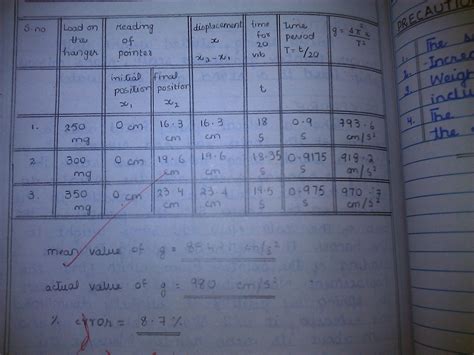 S.no Load on the hanger reading of pointer displacement x x₂-x₁ time for 20 vib time period T=t/20 g = 4π²x/T²
initial position x₁ final position x₂ t
1. 250 mg 0 cm 16.3 cm 16.3 cm 18 s 0.9 s 793.6 cm/s²
2. 300 mg 0 cm 19.6 cm 19.6 cm 18.35 s 0.9175 s 918.2 cm/s²
3. 350 mg 0 cm 23.4 cm 23.4 cm 19.5 s 0.975 s 970.7 cm/s²
mean value of g = cm/s²
actual value of g = 980 cm/s²
% error = 8.7%
PRECAUTIO
1. The
2. -Incre
3. Weig
inclu
4. The
the